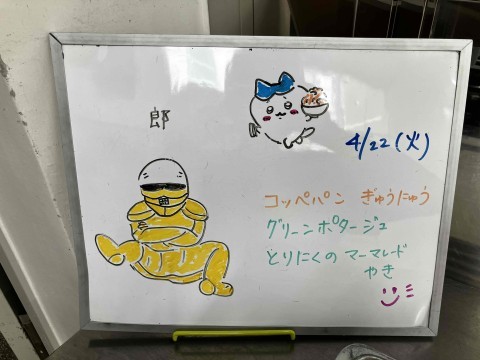 郎
4/22(火)
コッペパン ぎゅうにゅう
グリーンポタージュ
とりにくの マーマレード
やき